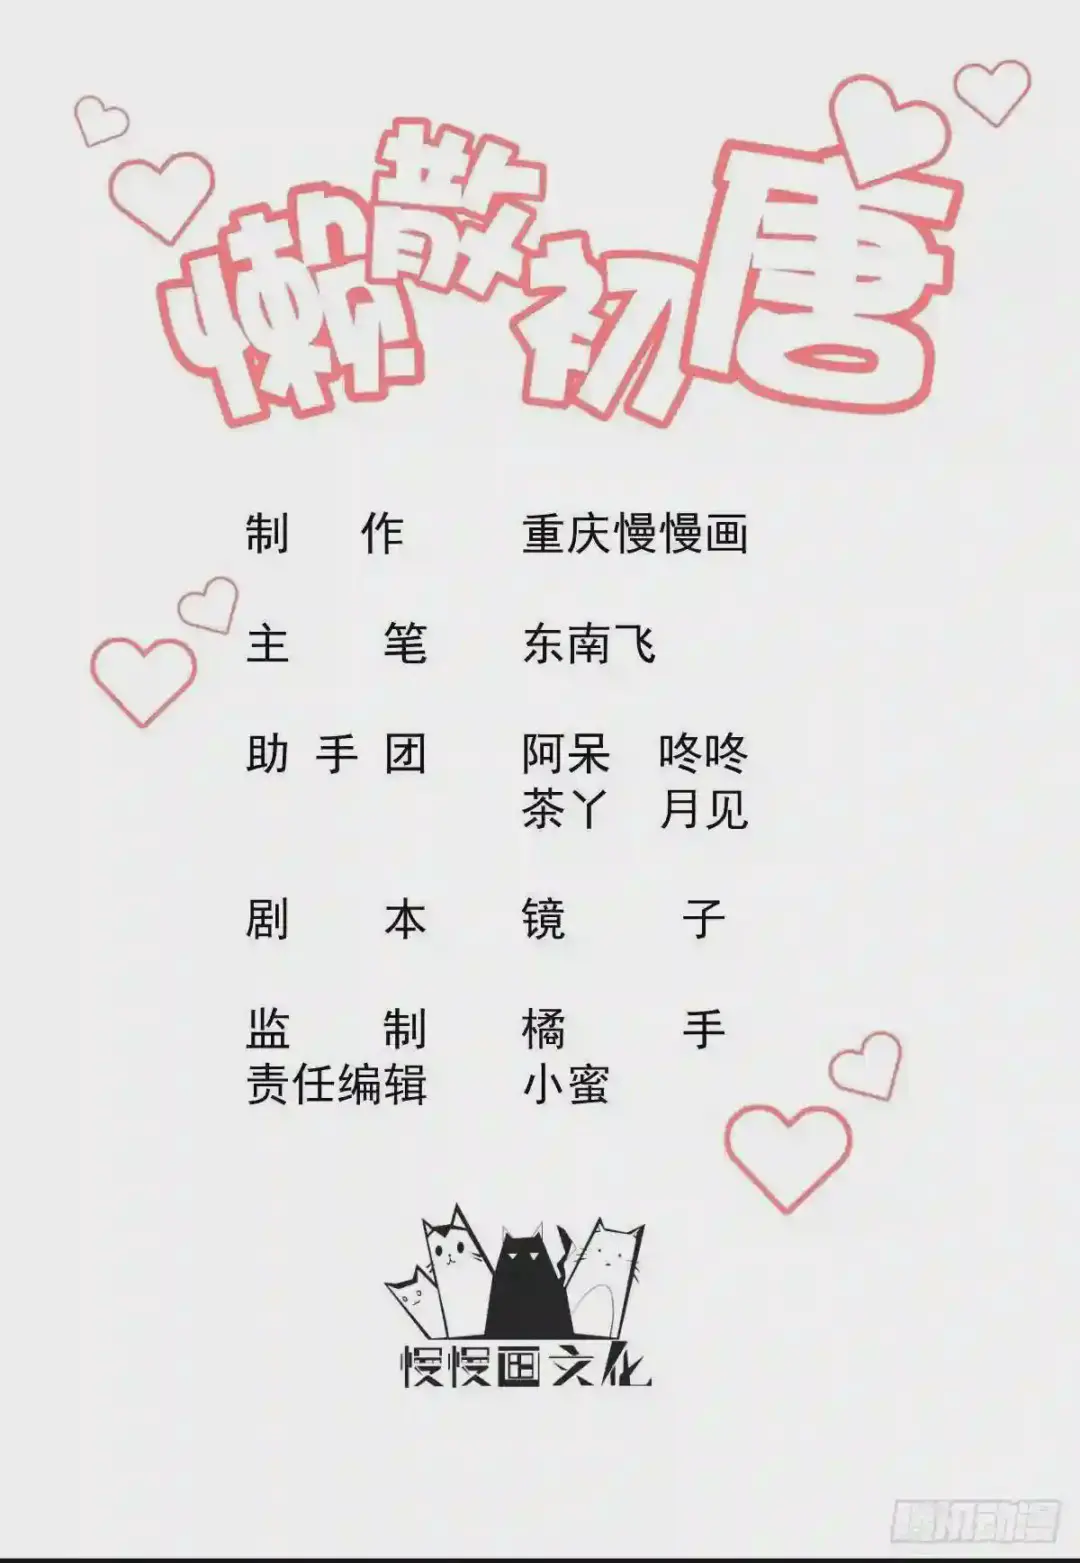 懒散初唐
制 作 重庆慢慢画
主 笔 东南飞
助 手 团 阿呆 咚咚
茶丫 月见
剧 本 镜 子
监 制 橘 手
责任编辑 小蜜
慢慢画文化
腾讯动漫